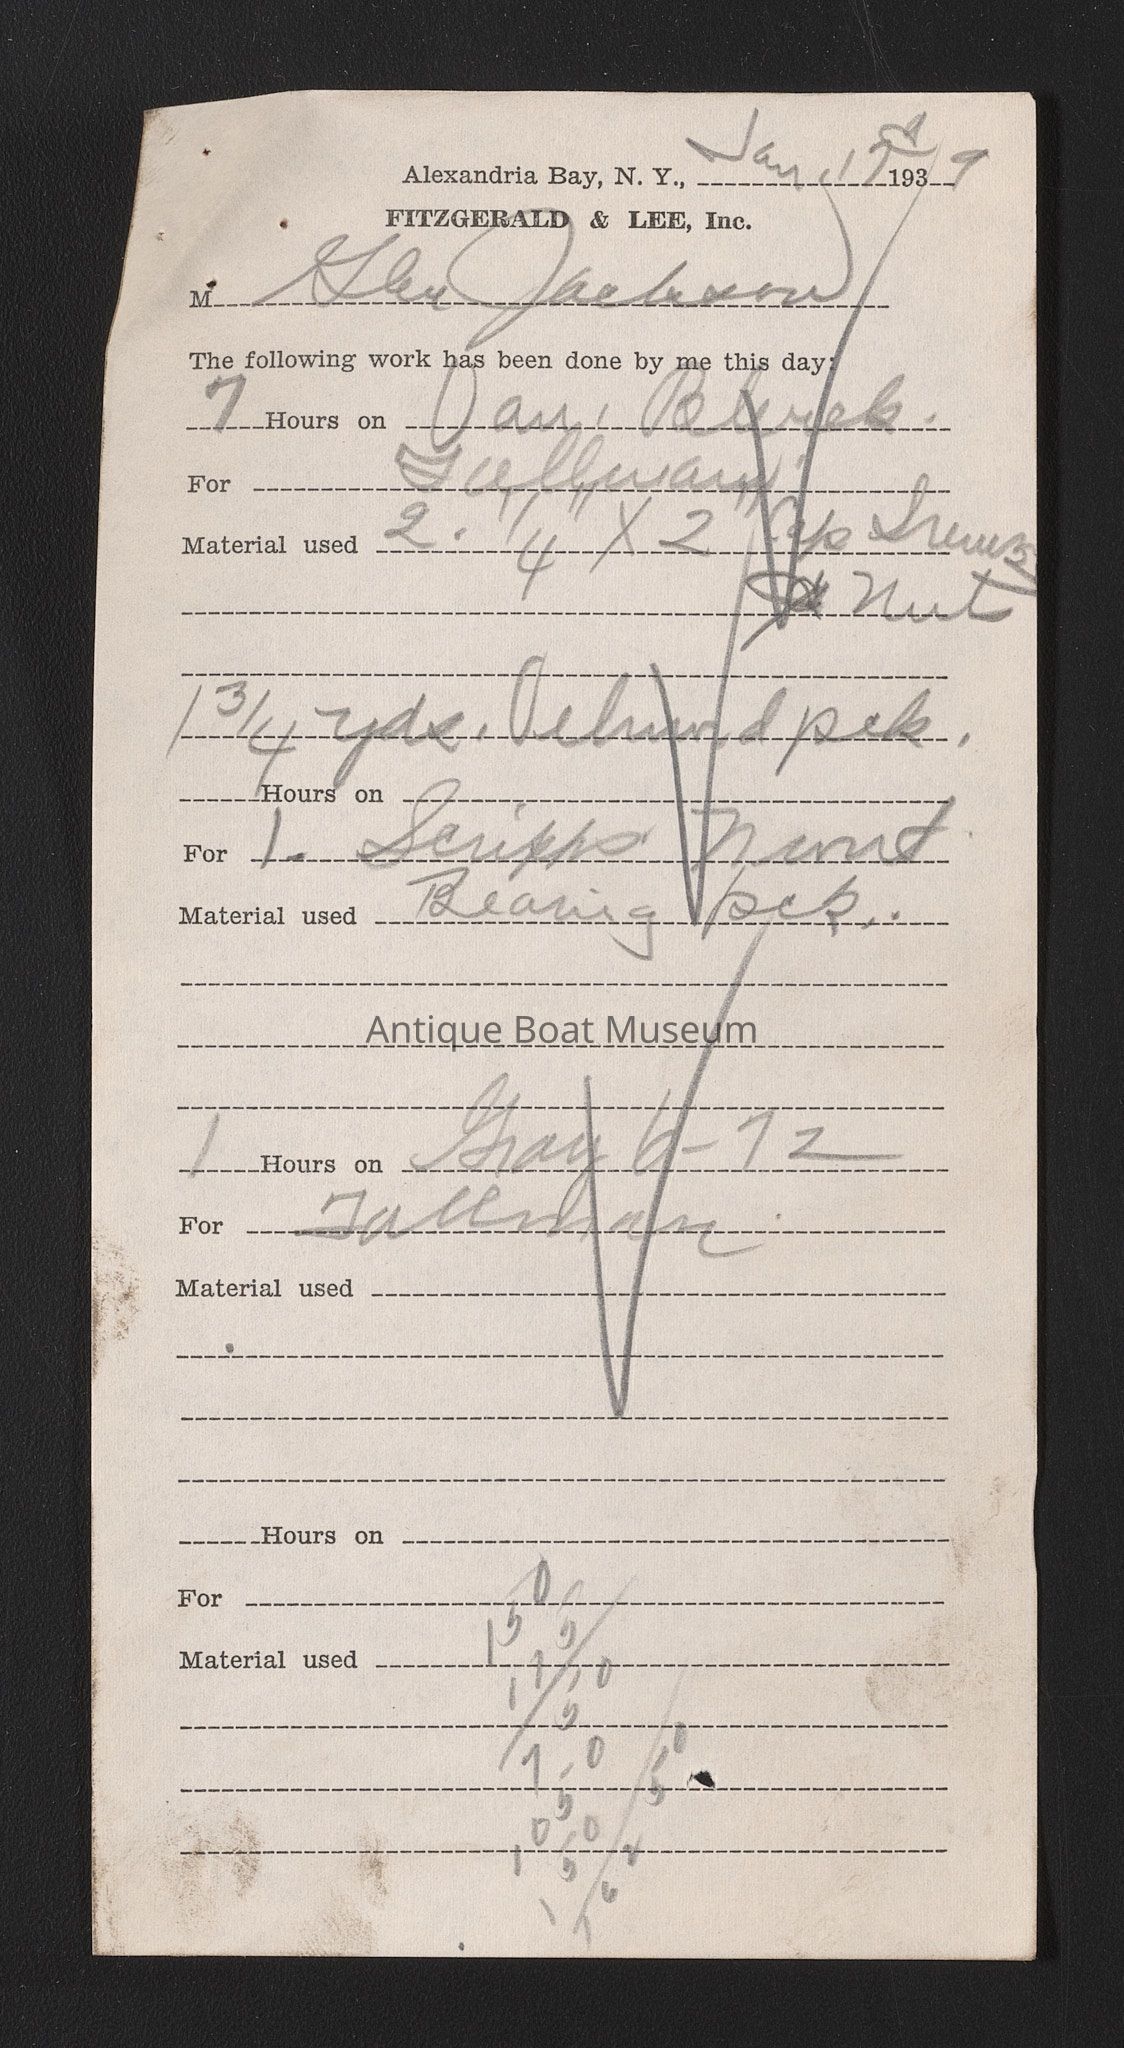 Alexandria Bay, N. Y., Jan. 17 1939
FITZGERALD & LEE, Inc.
M Glen Jackson
The following work has been done by me this day:
7 Hours on
For Tallman
Material used 2. 1/4 X 2 Cap Screws
& Nut
1 3/4 yds. pck.
Hours on
For 1. Scripps
Material used Bearing pck.
Antique Boat Museum
1 Hours on Gray 6-72
For Tallman
Material used
Hours on
For
Material used